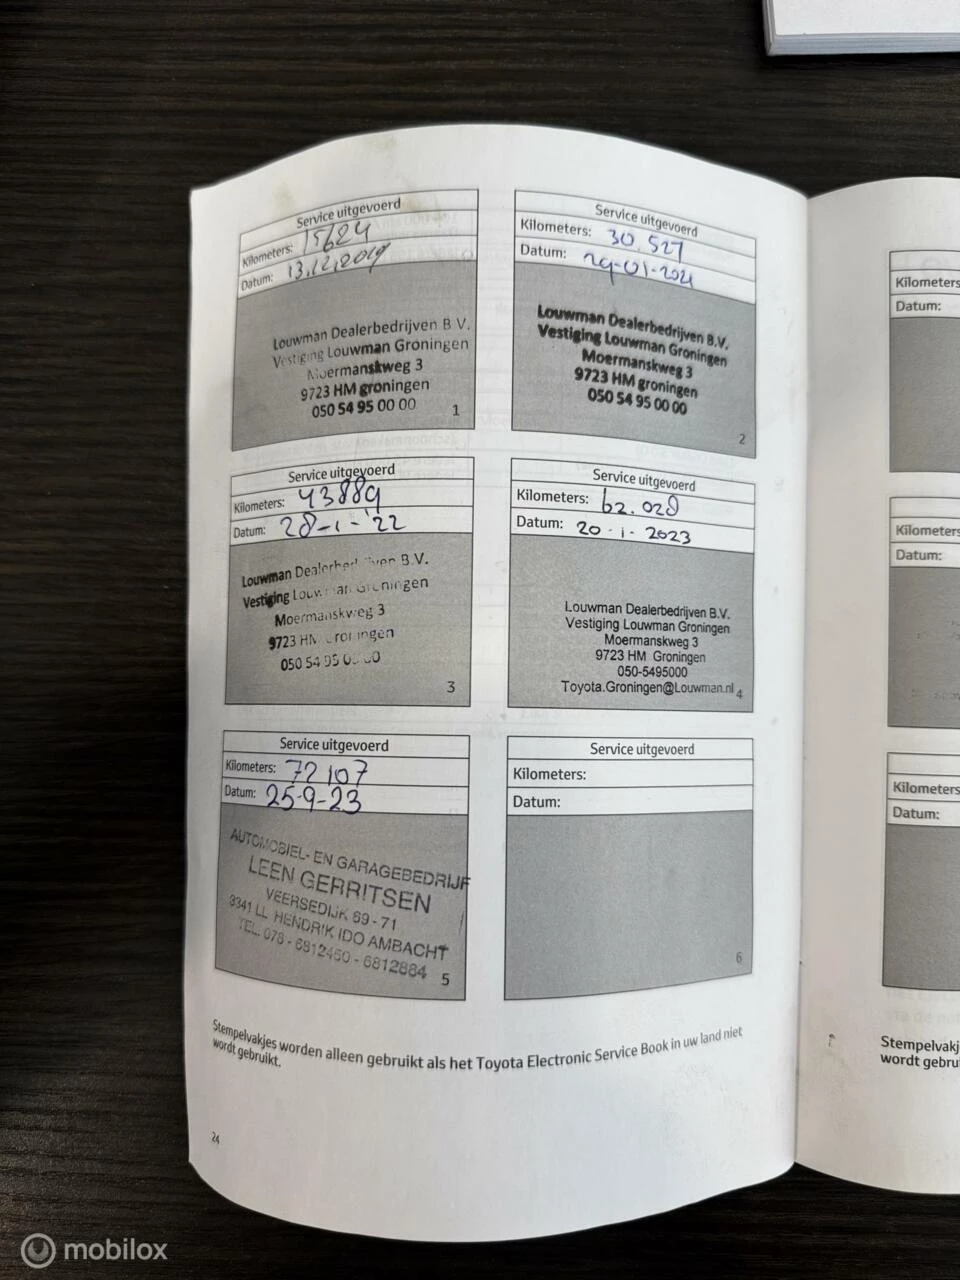 Service uitgevoerd
Kilometers: 15624
Datum: 13.12.2019
Louwman Dealerbedrijven B V.
Vestiging Louwman Groningen
Moermanskweg 3
9723 HM groningen
050 54 95 00 00
1
Service uitgevoerd
Kilometers: 30.527
Datum: 29-01-2021
Louwman Dealerbedrijven B.V.
Vestiging Louwman Groningen
Moermanskweg 3
9723 HM groningen
050 54 95 00 00
2
Service uitgevoerd
Kilometers: 43889
Datum: 28-1-'22
Louwman Dealerbedrijven B.V.
Vestiging Louwman Groningen
Moermanskweg 3
9723 HM Groningen
050 54 95 00 00
3
Service uitgevoerd
Kilometers: 62.028
Datum: 20-1-2023
Louwman Dealerbedrijven B.V.
Vestiging Louwman Groningen
Moermanskweg 3
9723 HM Groningen
050-5495000
Toyota.Groningen@Louwman.nl
4
Service uitgevoerd
Kilometers: 72107
Datum: 25-9-23
AUTOMOBIEL- EN GARAGEBEDRIJF
LEEN GERRITSEN
VEERSEDIJK 69-71
3341 LL HENDRIK IDO AMBACHT
TEL. 078-6812450-6812884
5
Service uitgevoerd
Kilometers:
Datum:
6
Stempelvakjes worden alleen gebruikt als het Toyota Electronic Service Book in uw land niet
wordt gebruikt.
24
Kilometers
Datum:
Kilometers
Datum:
Kilometers
Datum:
Stempelvakj
wordt gebru
mobilox